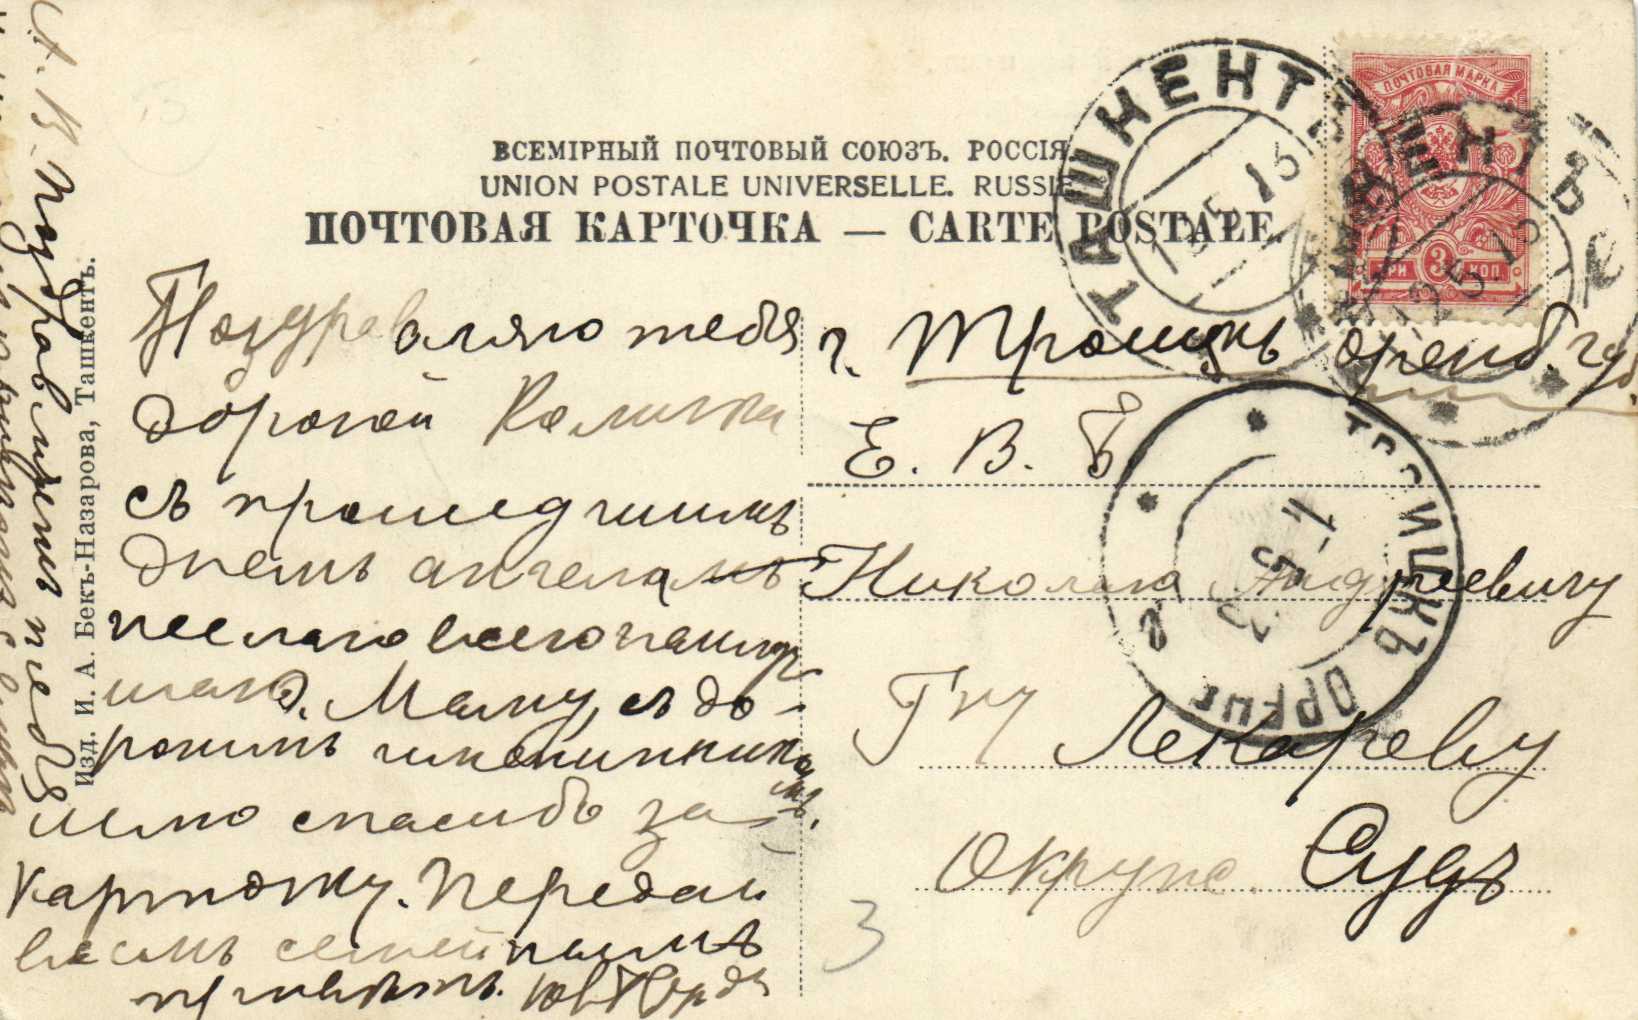 ВСЕМІРНЫЙ ПОЧТОВЫЙ СОЮЗЪ. РОССІЯ
UNION POSTALE UNIVERSELLE. RUSSIE
ПОЧТОВАЯ КАРТОЧКА — CARTE POSTALE.
ПОЧТОВАЯ МАРКА
ТРИ 3 КОП
ТАШКЕНТЪ
12 5 13
ТРОИЦКЪ ОРЕНБ
Изд. И. А. Бекъ-Назарова, Ташкентъ.
Поздравляю тебя
дорогой Количка
съ прошедшимъ
днемъ ангела
желаю всего наилуч
шаго. Маму съ до-
рогимъ именинникомъ.
спасибо за
карточку. Передай
всемъ семейнымъ
приветъ.
г. Троицкъ Оренб. губ.
Е. В. Б
Николаю Андреевичу
Гну Лекареву
Окружн. Судъ
3
А. В. Поздравляемъ тебя